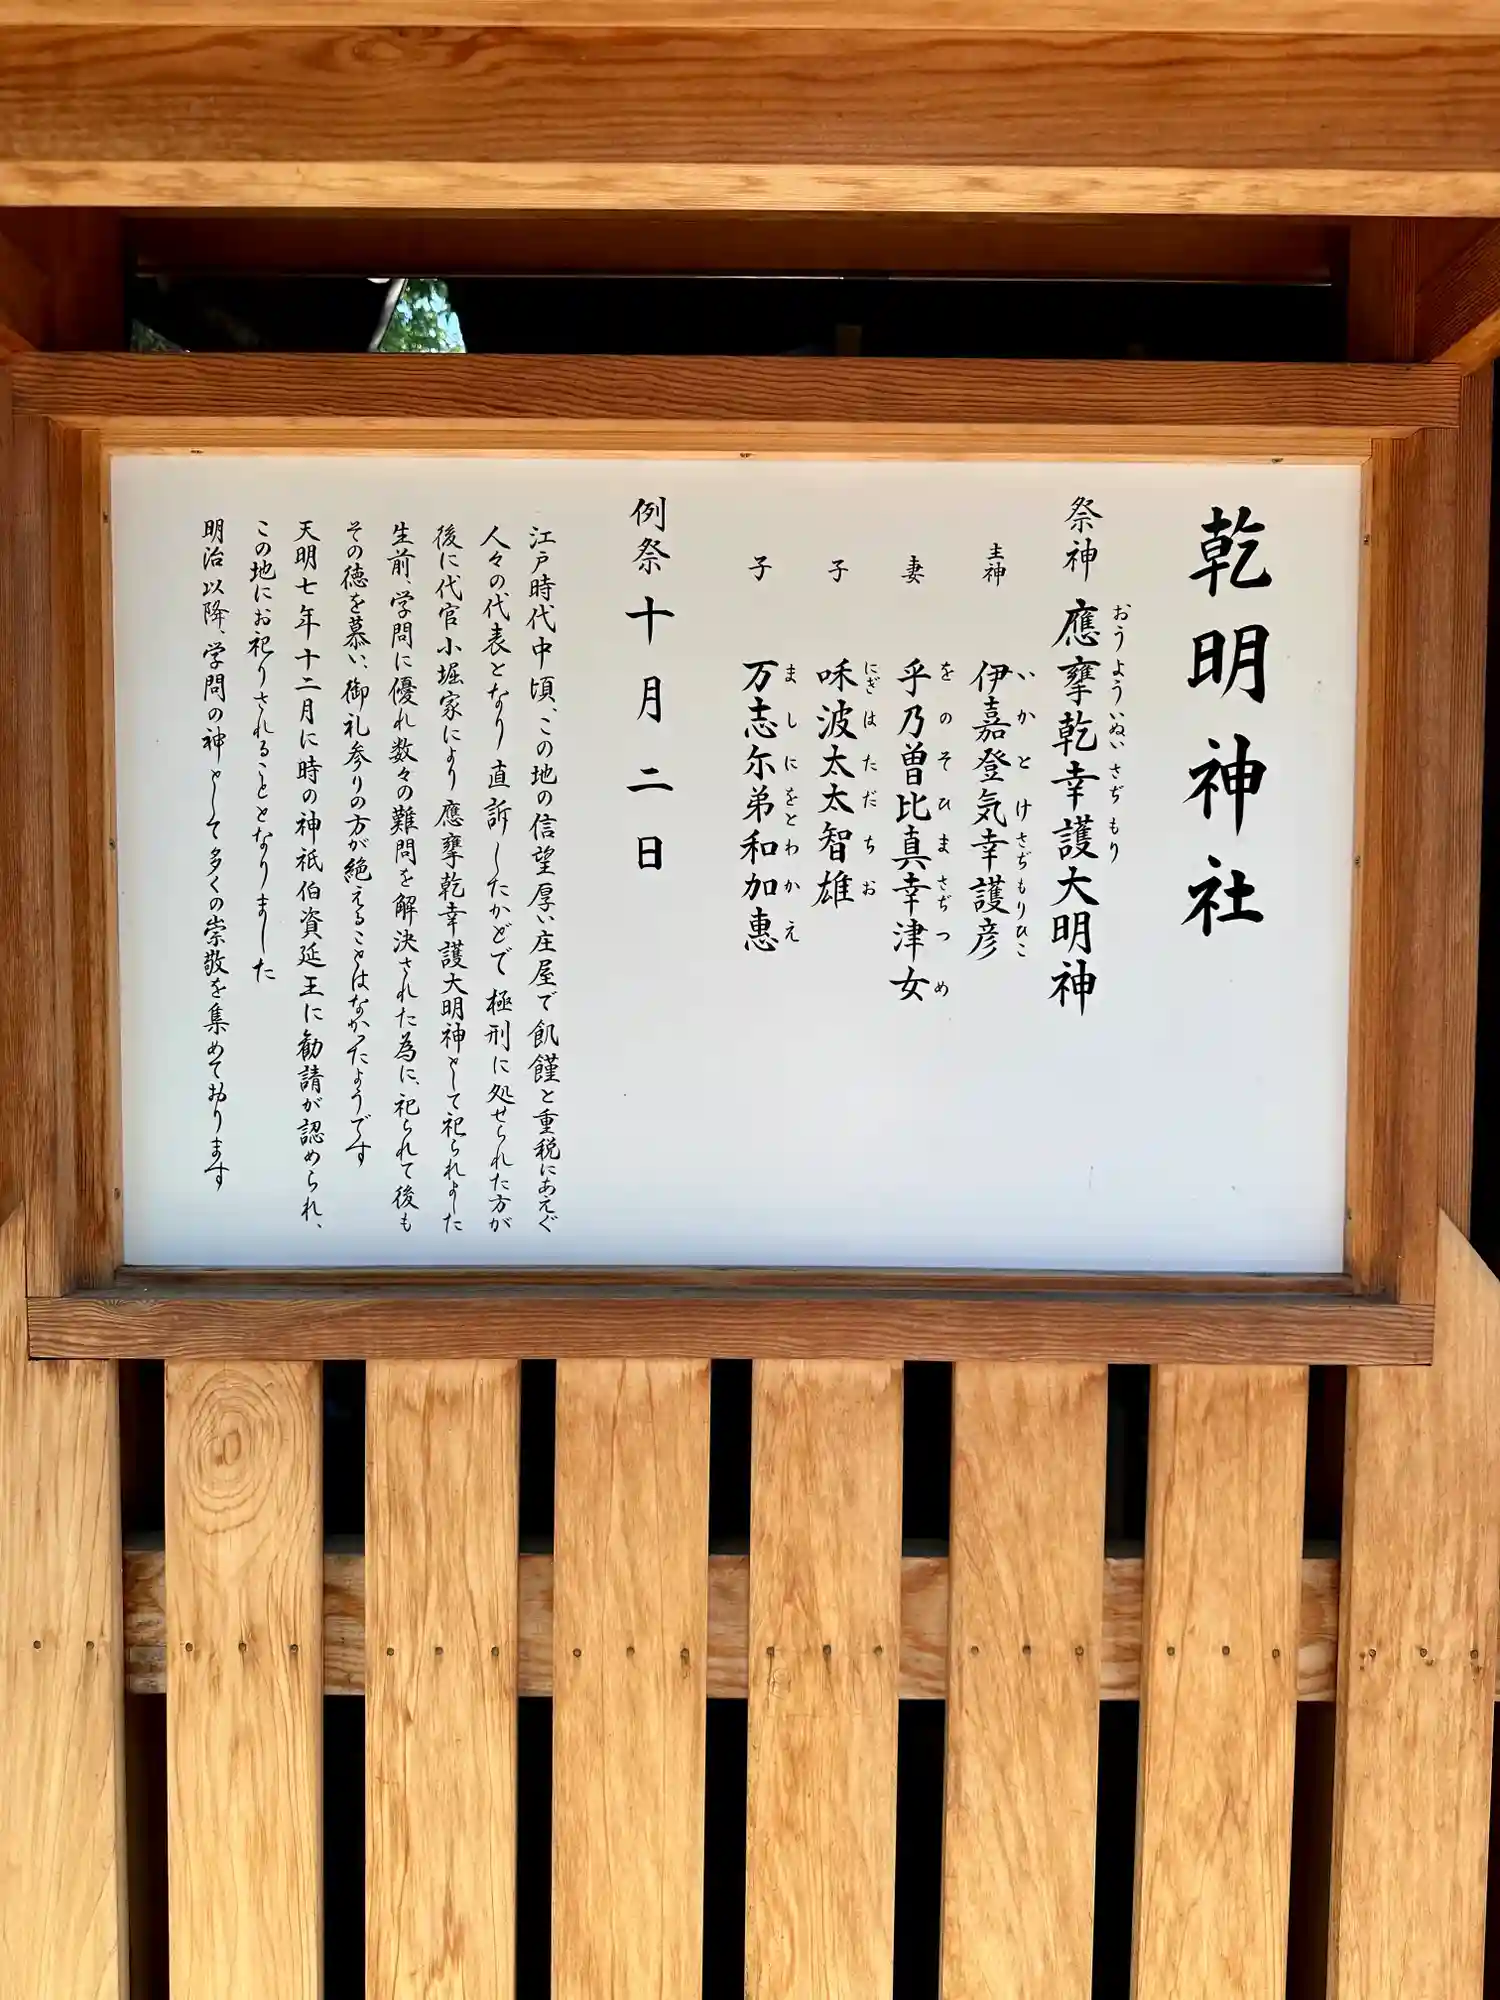 乾明神社
祭神 應擁乾幸護大明神
おうよういぬいさぢもり
主神 伊嘉登気幸護彦
いかとけさぢもりひこ
妻 乎乃曽比真幸津女
をのそひまさぢつめ
子 味波太太智雄
にぎはただちお
子 万志尓弟和加惠
ましにをとわかえ
例祭 十月二日
江戸時代中頃、この地の信望厚い庄屋で飢饉と重税にあえぐ
人々の代表となり直訴したかどで極刑に処せられた方が
後に代官小堀家により應擁乾幸護大明神として祀られました
生前、学問に優れ数々の難問を解決された為に、祀られて後も
その徳を慕い、御礼参りの方が絶えることはなかったようです
天明七年十二月に時の神祇伯資延王に勧請が認められ、
この地にお祀りされることとなりました
明治以降、学問の神として多くの崇敬を集めております